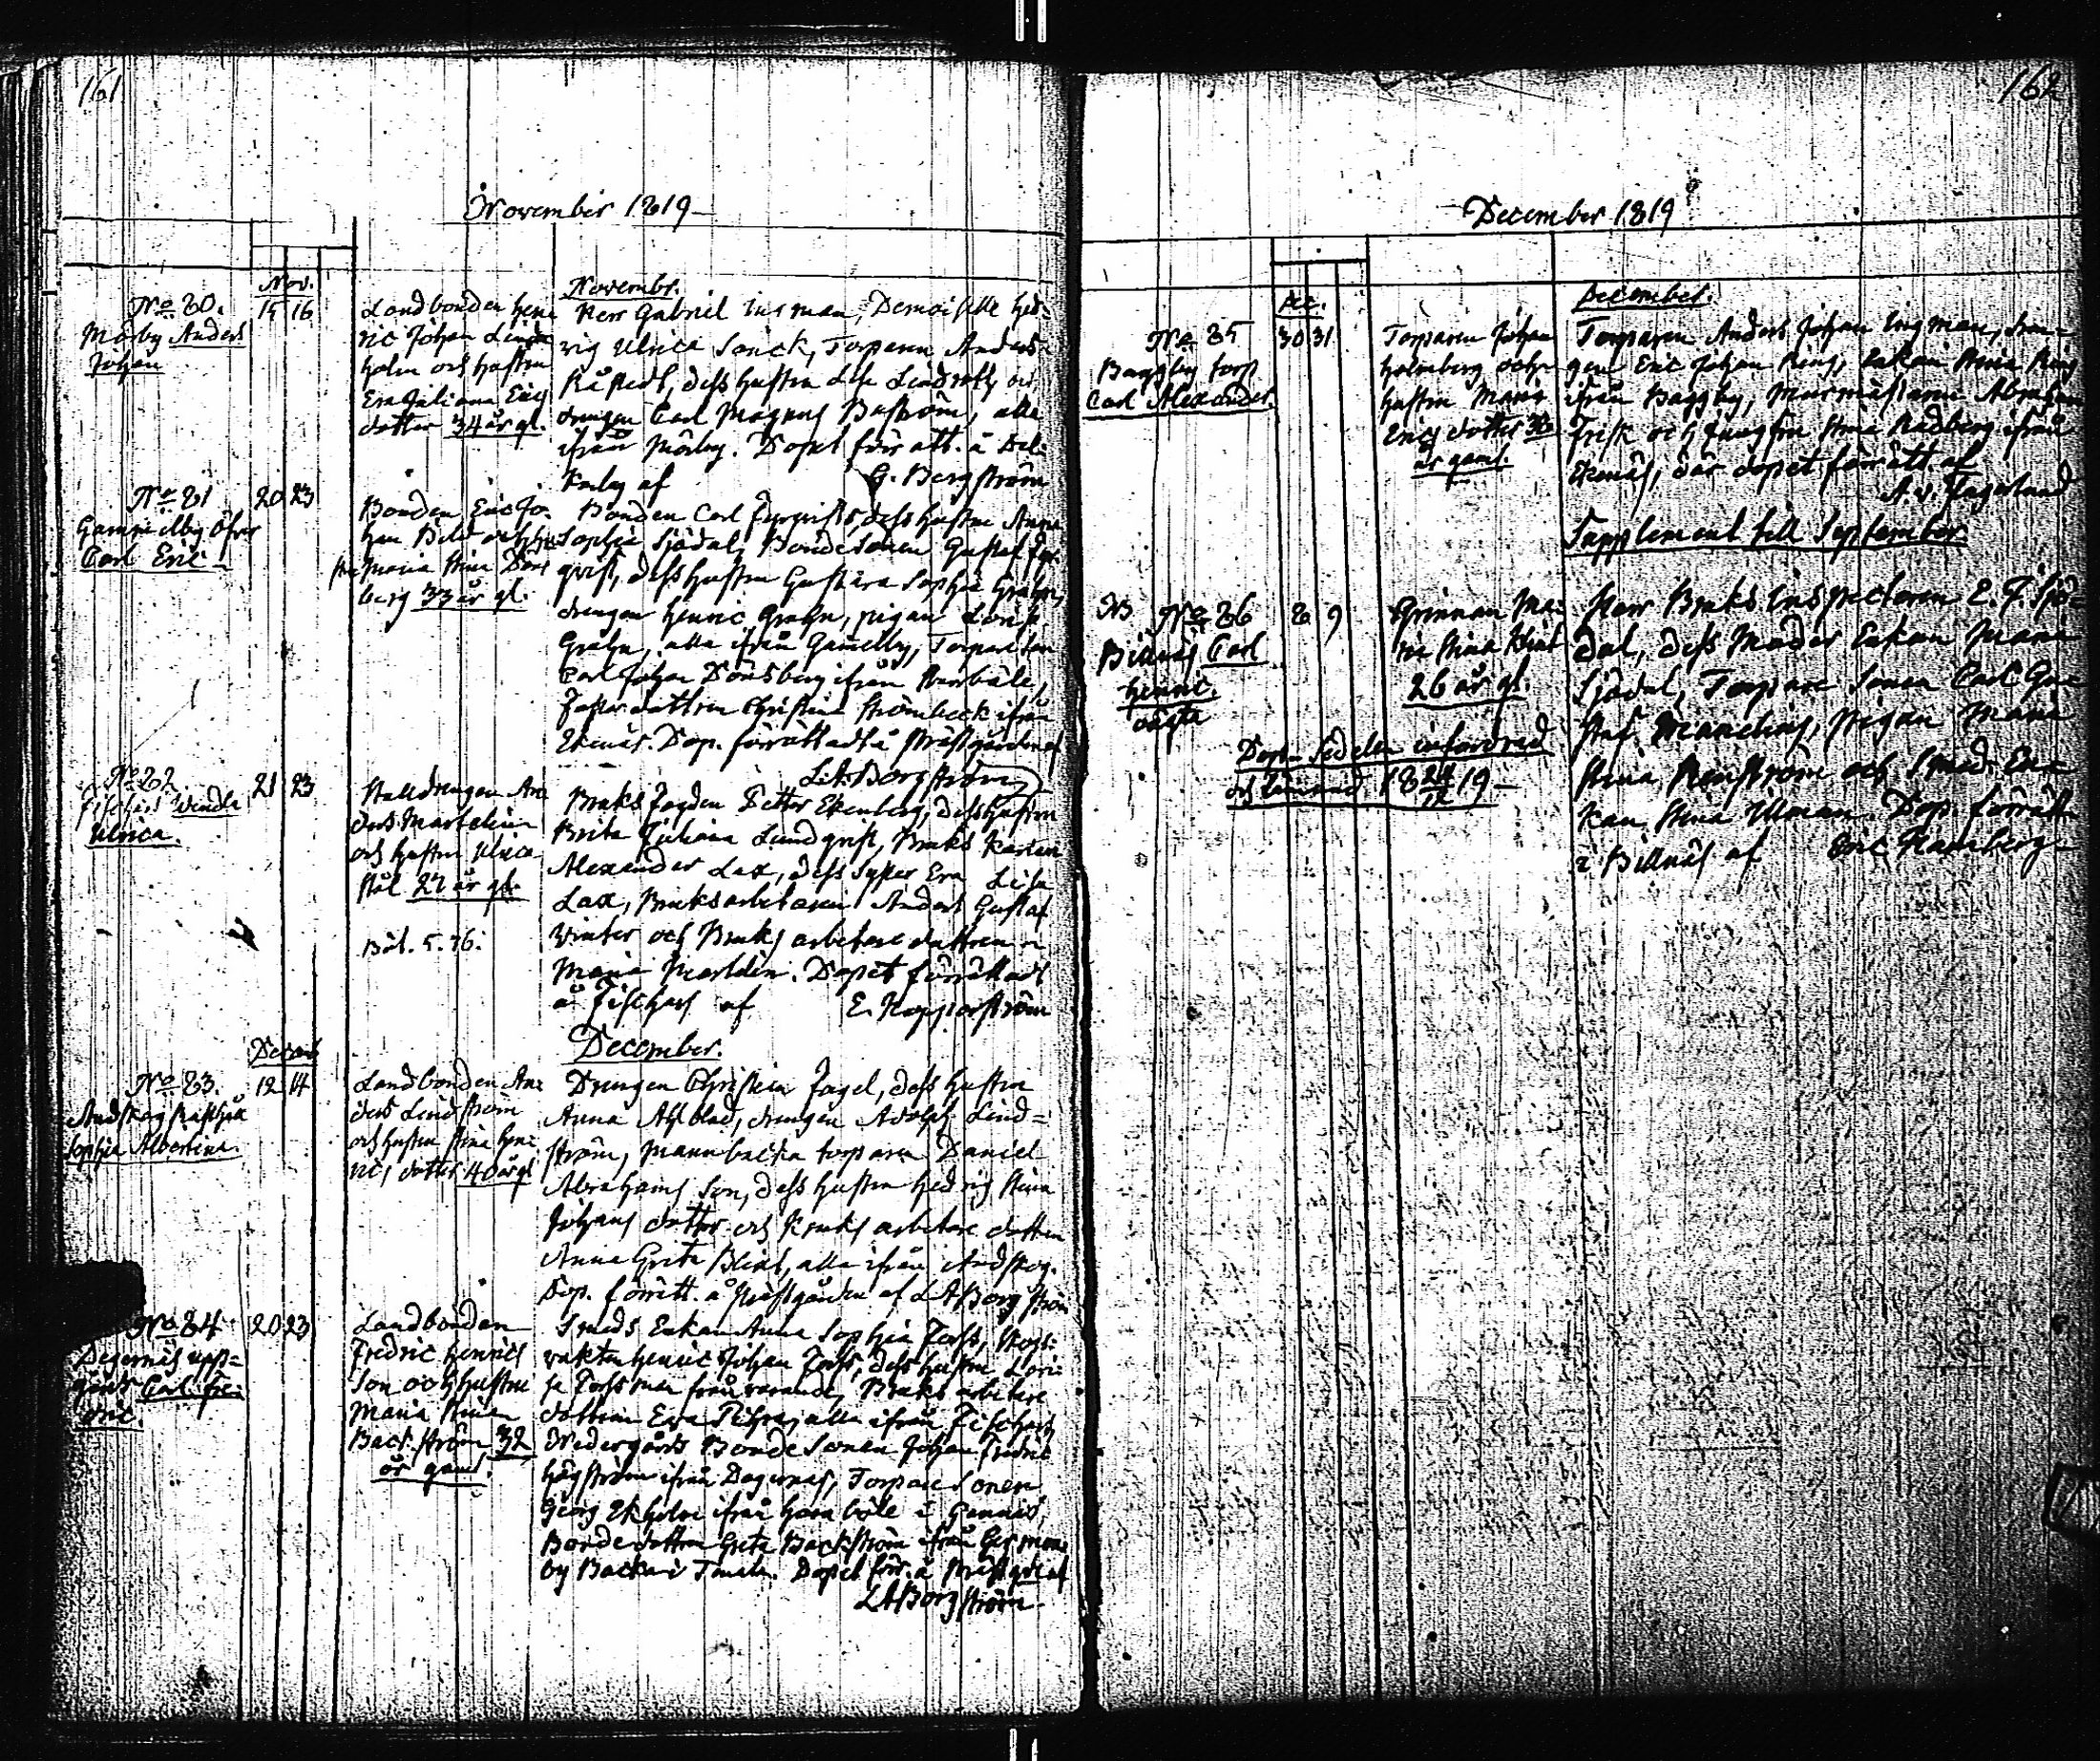 161
November 1819
Nov.
No 80.
Mörby Anders
Johan
15 16
Landbonden Hen
ric Johan Lind
holm och hustru
Eva Juliana Erics
dotter 34 år gl.
Novembr.
Herr Gabriel Lucsman, Demoiselle Hed-
vig Ulrica Sanck, Torparen Anders
dess hustru Lisa Lindroth och
drengen Carl Magnus Boström, alla
ifrån Mörby. Dopet förrätt. å
af G. Bergström
No 81
Gammelby Öfver
Carl Eric
20 23
Bonden Eric Jo-
han och hu
stru Maria Stina Döns
berg 33 år gl.
Bonden Carl Fyrqvist, dess hustru Anna
Sophia Sjödal, Bondesonen Gustaf Fyr
qvist, dess hustru Gustava Sophia Grahn,
drengen Henric Grahn, pigan Lovisa
Grahn, alla ifrån Gamelby, Torparesonen
Carl Johan Dönsberg ifrån
dottren Christina Strömbeck ifrån
Ekenäs. Dop. förrättadt å Prästgården af
L.A. Borgström
No 82
Fischars Wendla
Ulrica.
21 23
Stalldrengen An
ders Martelin
och hustru Ulrica
Stål 27 år gl.
Böl. 5. 76.
Bruks Fogden Petter Ekenberg, dess hustru
Brita Juliana Lundqvist, Bruks Karlen
Alexander Lax, dess Syster Eva Lisa
Lax, Bruksarbetaren Anders Gustaf
Winter och Bruks arbetare dottren
Maria Martelin. Dopet förrättadt
å Fischars af E. Kopparström
December.
Decemb
No 83.
Andskog
Sophia Albertina.
12 14
Landbonden An
ders Lindström
och hustru Stina Hen
rics dotter 40 år gl.
Drengen Christian Fagel, dess hustru
Anna Ahlblad, drengen Adolph Lind-
ström, Mannbacka torparen Daniel
Abrahams Son, dess hustru Hedvig Stina
Johans dotter och Bruks arbetare dottren
Anna Greta Blind, alla ifrån Andskog.
Dop. förrätt. å Prästgården af LABorgström
No 84
Degernäs upp-
gårds Carl Fre
dric.
20 23
Landbonden
Fredric Henrics
Son och hustru
Maria Stina
Backström 32
år gaml.
Smeds Enkan Anna Sophia Forss, Skogs
vakten Henric Johan Forss, dess hustru Lovi-
sa Forss men frånvarande, Bruks arbetare
dottren Eva alla ifrån Fischars,
Nedergårds Bonde Sonen Johan Fredric
Högström ifrån Degernäs, Torpare Sonen
Georg Ekholm ifrån böle i
Bondedottren Greta Backström ifrån Germund
by Backa i Tenala. Dopet förr. å Prästgård af
LABorgström
162
December 1819
Dec.
No 85
Baggby torp
Carl Alexander.
30 31
Torparen Johan
Holmberg och
hustru Maria
Erics dotter 36
år gaml.
December.
Torparen Anders Johan Lingman, dren-
gen Eric Johan Ring, Enkan Stina Ring
ifrån Baggby, Murmästaren Abraham
Frisk och Jungfru Stina Rådberg ifrån
Ekenäs, der dopet förrätt. af
A. v. Fagerlund
Supplement till September.
NB No 86
Billnäs Carl
Henric.
oägta
8 9
Qvinnan Ma
ria Stina Klint
26 år gl.
Dop-Sedelen infordrad
och lämnad 18 24/12 19
Herr Bruks Inspectoren E. F. Sjö-
dal, dess Moder Enkan Maria
Sjödal, Torpare Sonen Carl Gu
staf Wiandelius, Pigan Maria
Stina Renström och Smeds En
kan Stina Ulman. Dop. förrätt.
i Billnäs af Eric Hamberg